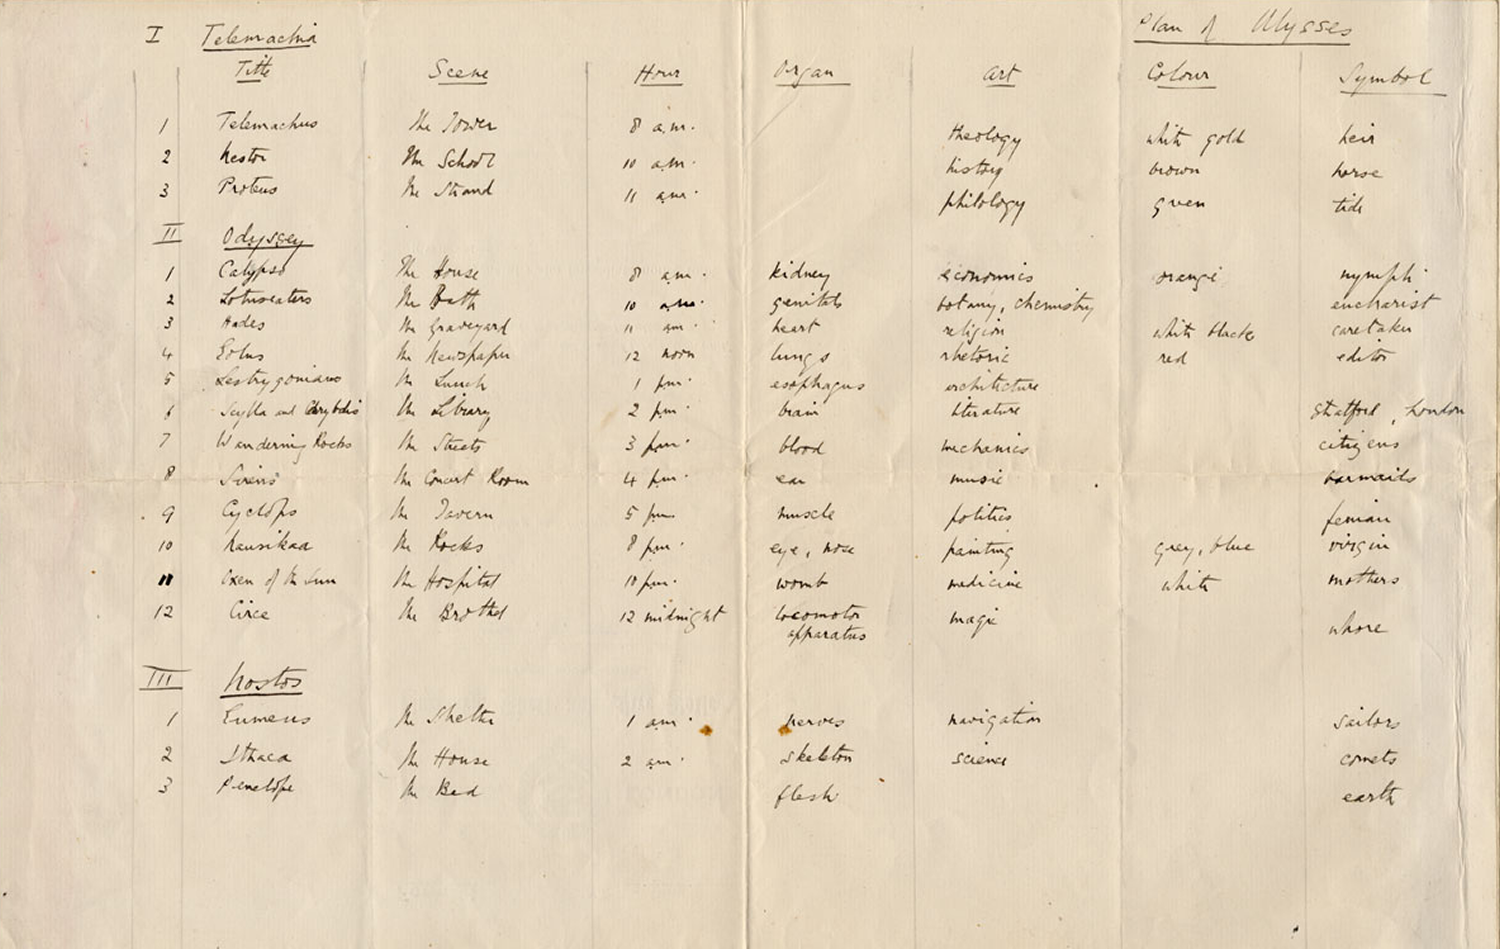 Plan of Ulysses
I Telemachia
Title Scene Hour Organ Art Colour Symbol
1 Telemachus The Tower 8 a.m. theology white gold heir
2 Nestor The School 10 a.m. history brown horse
3 Proteus The Strand 11 a.m. philology green tide
II Odyssey
1 Calypso The House 8 am. kidney economics orange nymph
2 Lotuseaters The Bath 10 am. genitals botany, chemistry eucharist
3 Hades The Graveyard 11 am. heart religion white black caretaker
4 Eolus The Newspaper 12 noon lungs rhetoric red editor
5 Lestrygonians The Lunch 1 pm. esophagus architecture
6 Scylla and Charybdis The Library 2 pm. brain literature Stratford, London
7 Wandering Rocks The Streets 3 pm. blood mechanics citizens
8 Sirens The Concert Room 4 pm. ear music barmaids
9 Cyclops The Tavern 5 pm muscle politics fenian
10 Nausikaa The Rocks 8 pm. eye, nose painting grey, blue virgin
11 Oxen of the Sun The Hospital 10 pm. womb medicine white mothers
12 Circe The Brothel 12 midnight locomotor apparatus magic whore
III Nostos
1 Eumeus The Shelter 1 am. nerves navigation sailors
2 Ithaca The House 2 am. skeleton science comets
3 Penelope The Bed flesh earth